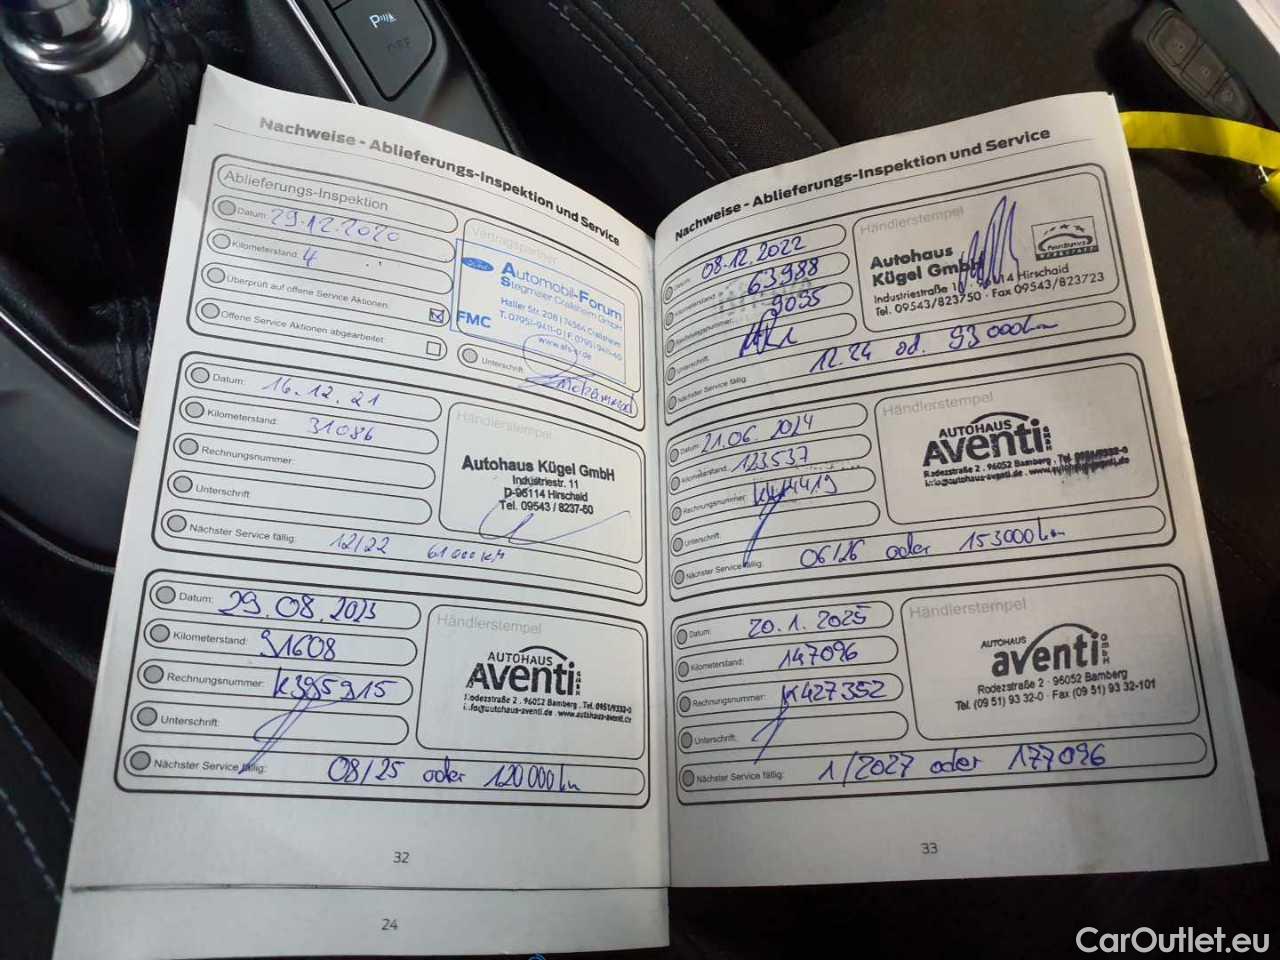 P
OFF
Nachweise - Ablieferungs-Inspektion und Service
Ablieferungs-Inspektion
Datum: 29.12.2020
Kilometerstand: 4
Überprüft auf offene Service Aktionen:
Offene Service Aktionen abgearbeitet:
Vertragspartner
Ford
Automobil-Forum
Stegmaier Crailsheim GmbH
Haller Str. 208 | 74564 Crailsheim
FMC
www.afs-cr.de
Unterschrift:
Datum: 16.12.21
Kilometerstand: 31086
Rechnungsnummer:
Unterschrift:
Nächster Service fällig: 12/22 61000 KM
Händlerstempel
Autohaus Kügel GmbH
Industriestr. 11
D-96114 Hirschaid
Tel. 09543 / 8237-50
Datum: 29.08.2023
Kilometerstand: 91608
Rechnungsnummer: K395915
Unterschrift:
Nächster Service fällig: 08/25 oder 120000 km
Händlerstempel
AUTOHAUS
AVENTi GMBH
Rodezstraße 2 · 96052 Bamberg · Tel. 0951/9332-0
info@autohaus-aventi.de · www.autohaus-aventi.de
32
24
Nachweise - Ablieferungs-Inspektion und Service
Datum: 08.12.2022
Kilometerstand: 63988
Rechnungsnummer: 9095
Unterschrift:
Nächster Service fällig: 12.24 od. 93000 km
Händlerstempel
Autohaus
Kügel GmbH
Industriestraße 11 · 96114 Hirschaid
Tel. 09543/823750 · Fax 09543/823723
Datum: 21.06.2024
Kilometerstand: 123537
Rechnungsnummer:
Unterschrift:
Nächster Service fällig: 06/26 oder 153000 km
Händlerstempel
AUTOHAUS
AVENTi GMBH
Rodezstraße 2 · 96052 Bamberg · Tel. 0951/9332-0
info@autohaus-aventi.de · www.autohaus-aventi.de
Datum: 20.1.2025
Kilometerstand: 147096
Rechnungsnummer: K427352
Unterschrift:
Nächster Service fällig: 1/2027 oder 177096
Händlerstempel
AUTOHAUS
aventi GMBH
Rodezstraße 2 · 96052 Bamberg
Tel. (09 51) 93 32-0 · Fax (09 51) 93 32-101
33
CarOutlet.eu